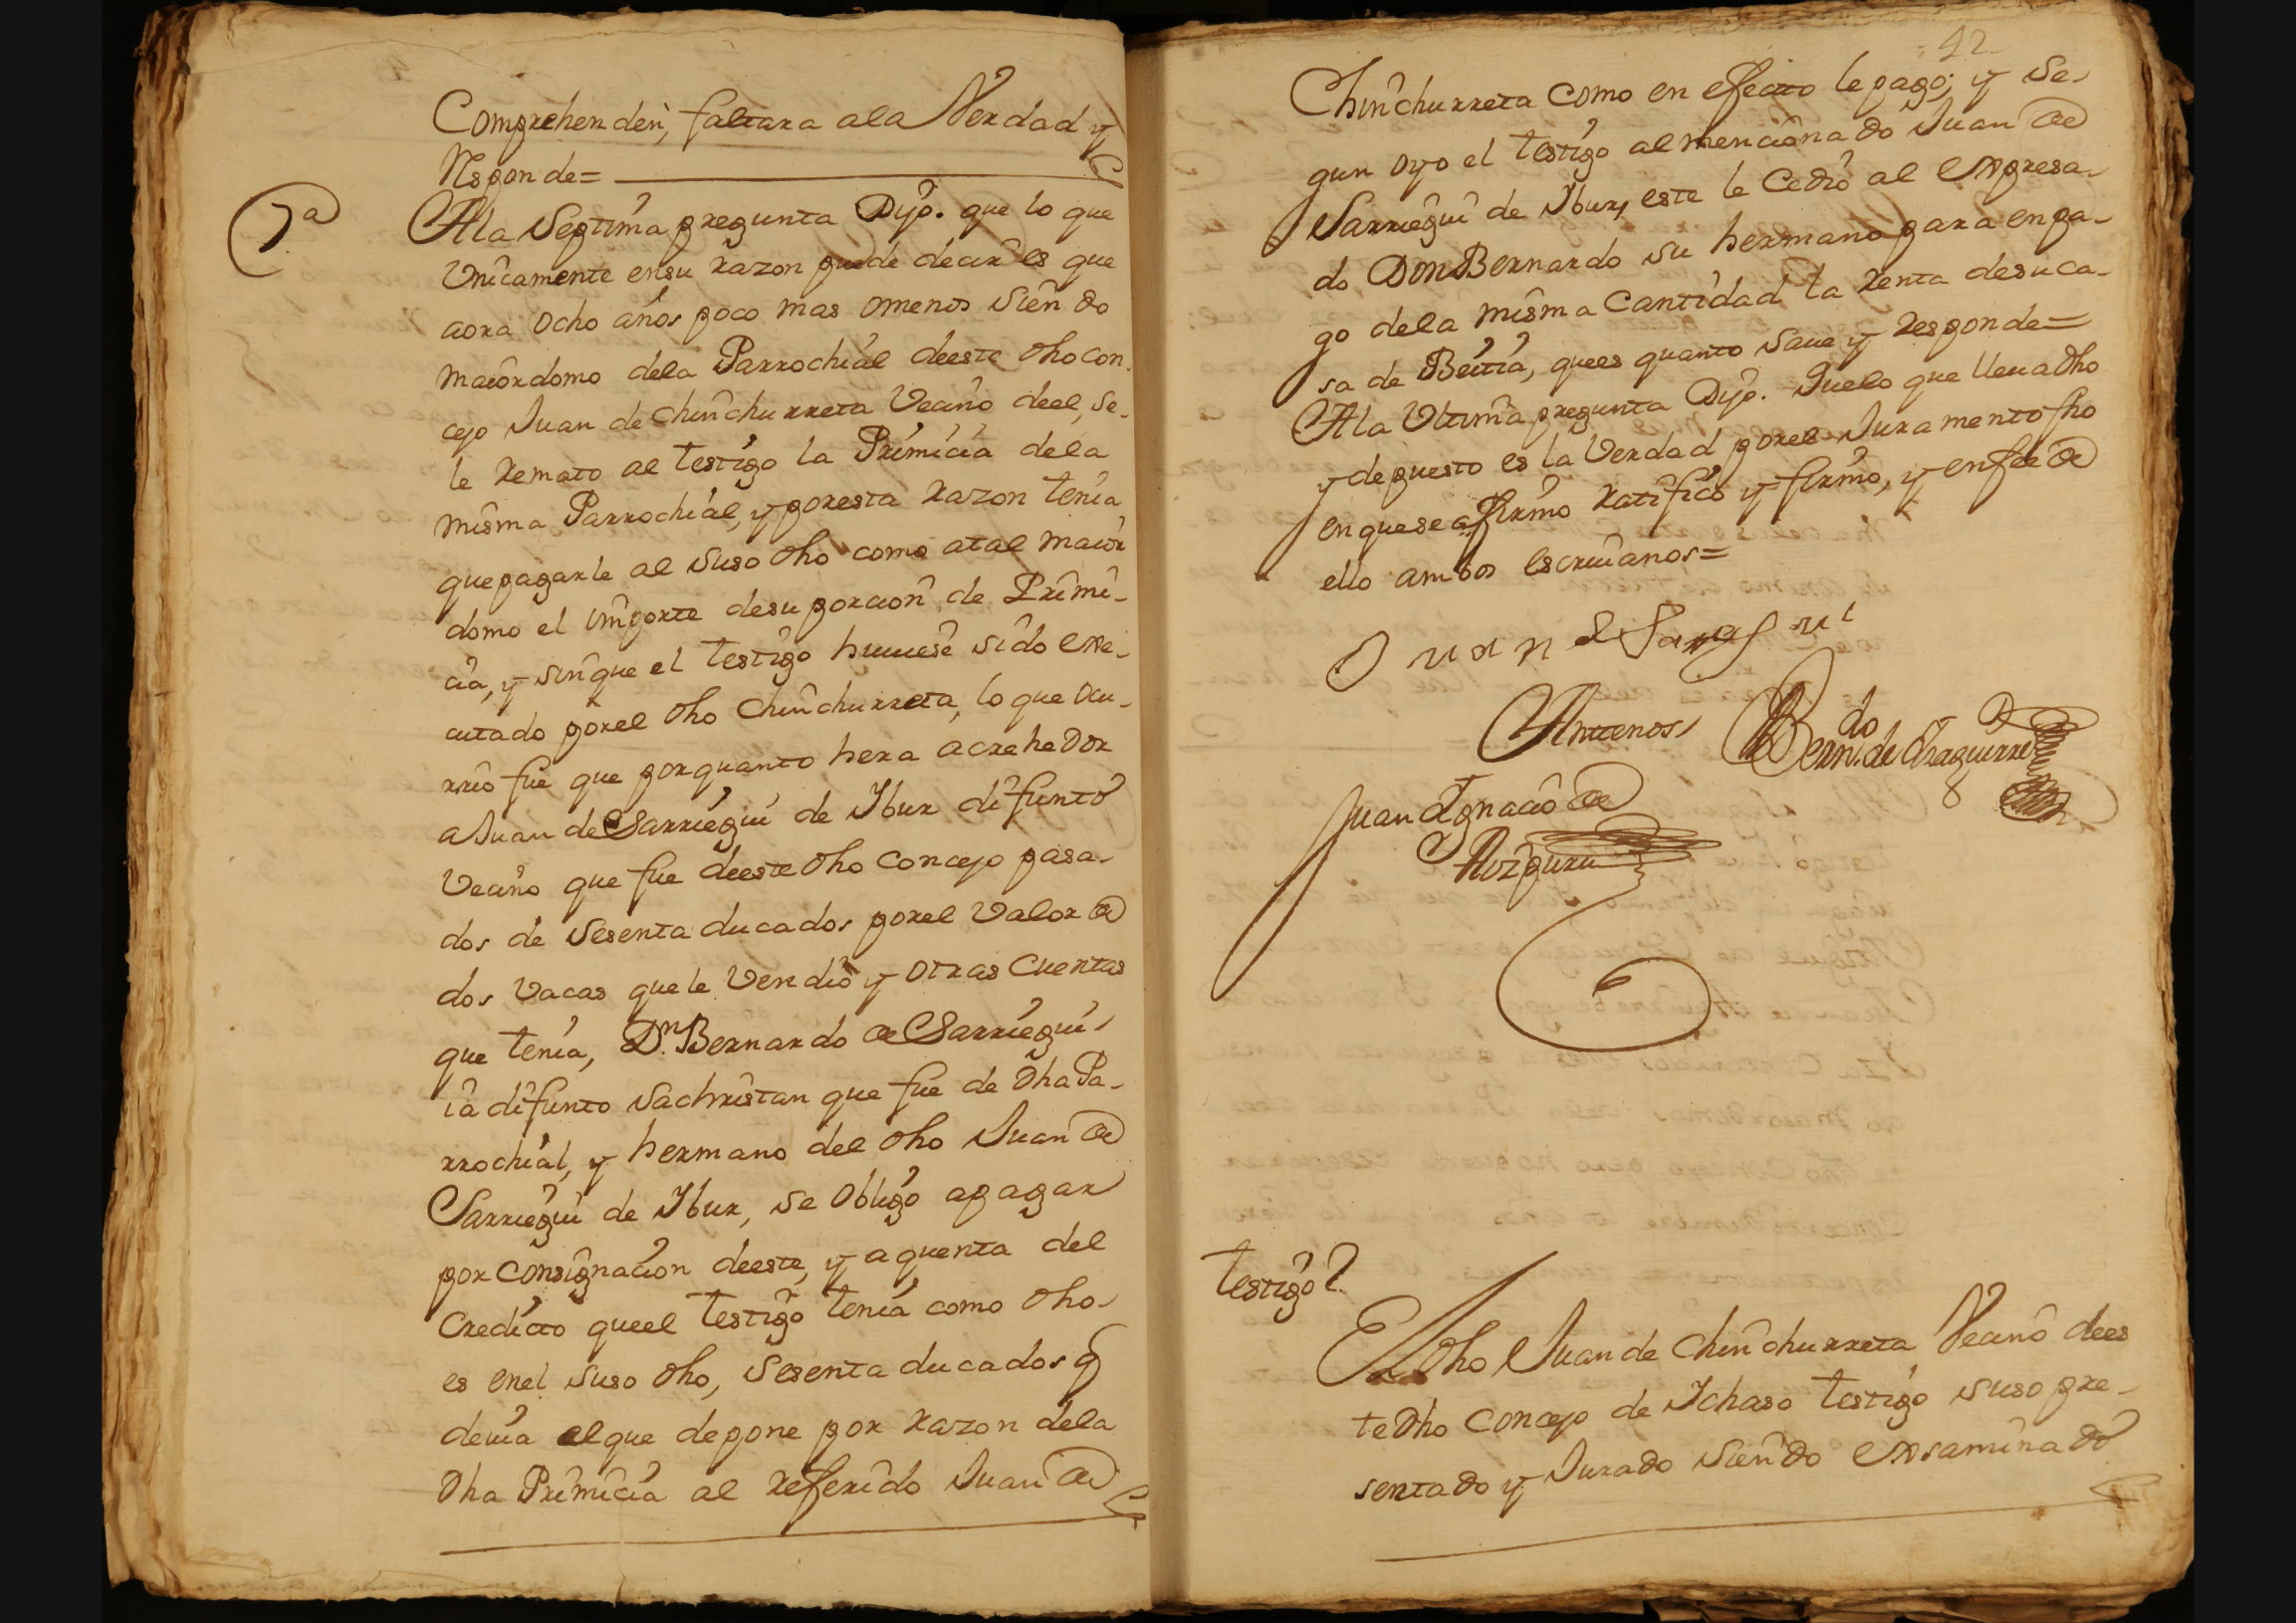 Comprehenden, faltara ala Verdad y
Responde=
7ª
Ala Septima pregunta Dijo. que lo que
Vnicamente ensu razon puede decir es que
aora ocho años poco mas omenos siendo
maiordomo dela Parrochial deeste dho con
cejo Juan de Chinchurreta Vecino deel, se-
le remato al testigo la Primicia dela
misma Parrochial, y poresta razon tenia
quepagarle al suso dho como atal maior
domo el importe desu porcion de Primi-
cia, y sinque el testigo huuiese sido exe-
cutado porel dho Chinchurreta, lo que ocu-
rrio fue que porquanto hera acrehedor
a Juan de Sarriegui de Ibur difunto
Vecino que fue deeste dho concejo pasa-
dos de sesenta ducados porel Valor de
dos Vacas quele Vendio y otras Cuentas
que tenia, Dn. Bernardo de Sarriegui
ia difunto sachristan que fue de dha Pa-
rrochial, y hermano del dho Juan de
Sarriegui de Ibur, se obligo apagar
por consignacion deeste, y a quenta del
Credicto queel testigo tenia como dho
es enel suso dho, sesenta ducados q
deuia elque depone por razon dela
dha Primicia al referido Juan de
42
Chinchurreta como en efecto le pago; y se-
gun oyo el testigo al mencionado Juan de
Sarriegui de Ibur, este le Cedio al expresa-
do Don Bernardo su hermano para enpa-
go dela misma Cantidad la renta desuca-
sa de Beitia, quees quanto saue y responde=
Ala Vltima pregunta Dijo. Quelo que lleua dho
y depuesto es la Verdad porel Juramento fho
enquese afirmo ratifico y firmo, y enfee de
ello ambos escriuanos=
Juan de Sarasti
Antenos
Bern.do de Yraguirre
Juan Ygnacio de
Aozpuru
testigo 2.
El dho Juan de Chinchurreta Vecino dees
te dho concejo de Ichaso testigo suso pre-
sentado y Jurado siendo exsaminado